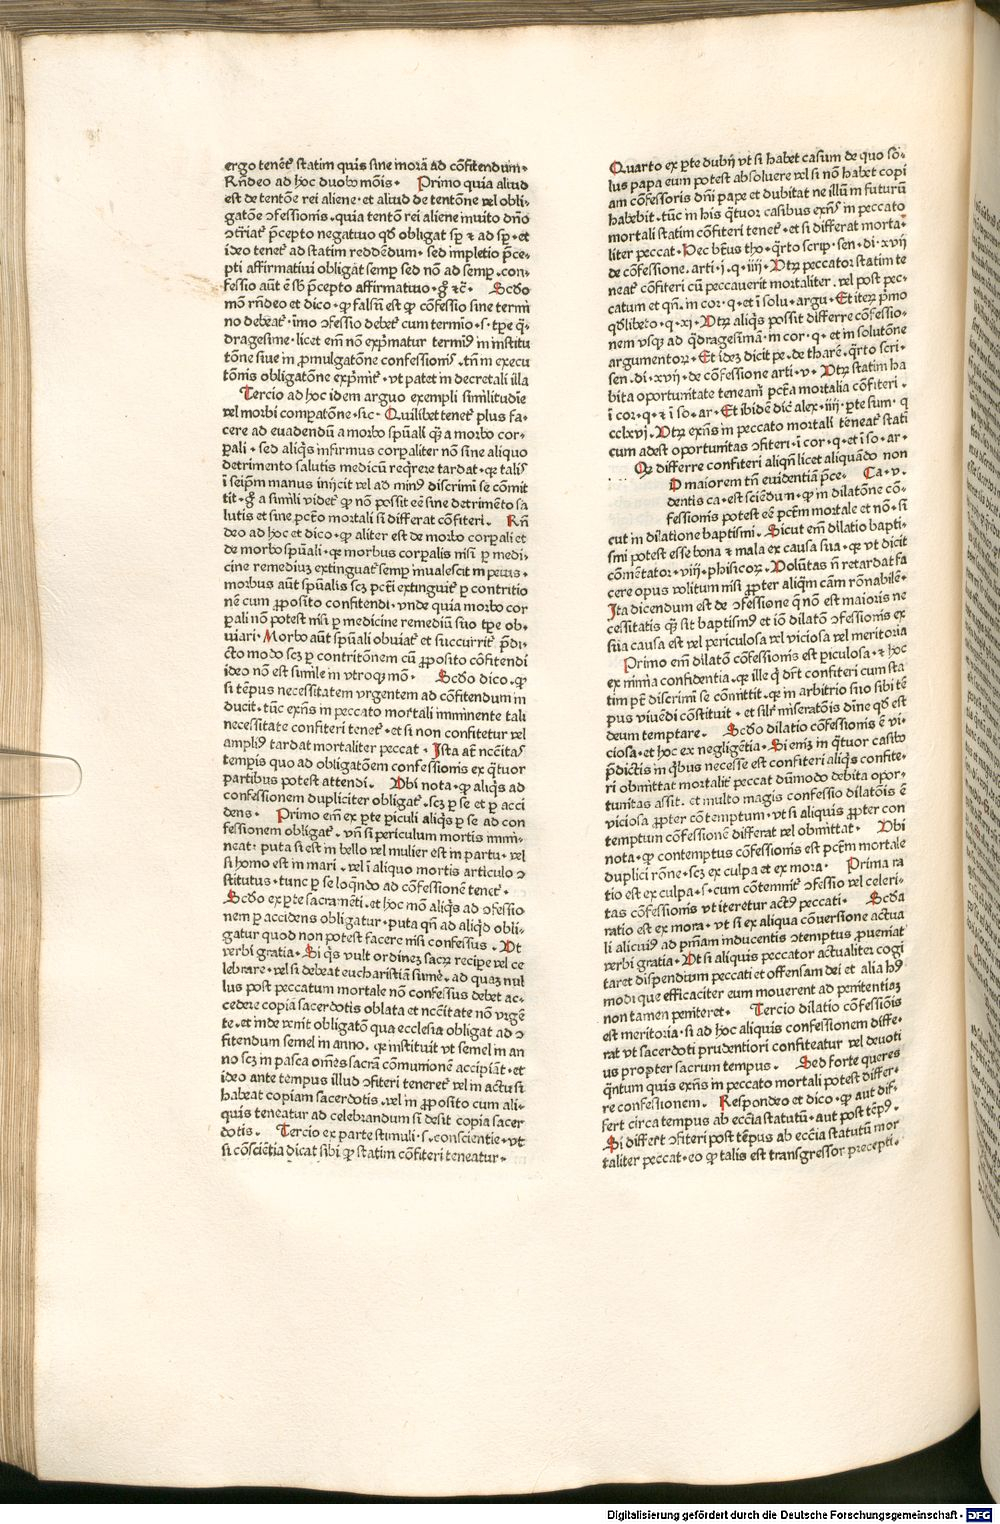 ergo teneť statim quis sine morā ad cōfitendum.
Rñdeo ad hoc duobo mōis. Primo quia aliud
est de tentōne rei aliene. et aliud de tentōne vel obli-
gatōe ɔfessionis. quia tentō rei aliene inuito dño
ɔtriať p̄cepto negatiuo qđ obligat sp̄ ⁊ ad sp̄. et
ideo teneť ad statim reddēdum. sed impletio p̄ce-
pti affirmatiui obligat semp̱ sed nō ad semp̱. con-
fessio aūt ē sb̄ p̄cepto affirmatiuo. g̊ ⁊c̄. Scďo
mō rñdeo et dico. ꝙ falsū est ꝙ cōfessio sine termi
no debeať. imo ɔfessio debeť cum termīo. s. tp̱e q̄-
dragesime. licet em̄ nō exp̱matur termīꝯ in institu
tōne siue in ꝓmulgatōne confessionis. tn̄ in execu
tōnis obligatōne exp̱miť. vt patet in decretali illa
Tercio ad hoc idem arguo exempli similitudīe
vel morbi comp̱atōne. sic. Quilibet teneť plus fa-
cere ad euadendū a morbo sp̄uali qꝫ a morbo cor-
p̱ali. sed aliq̄s infirmus corp̱aliter nō sine aliquo
detrimento salutis medicū req̄rere tardat. qꝛ talis
ī seip̄m manus inijcit vel ad minꝯ discrimī se cōmit
tit. g̊ a simili videť ꝙ nō possit eē sine detrimēto sa
lutis et sine pctō mortali si differat cōfiteri. Rñ
deo ad hoc et dico. ꝙ aliter est de morbo corp̱ali et
de morbo sp̄uali. qꝛ morbus corp̱alis nisi p̱ medi-
cine remediuꝫ extinguať semp̱ inualescit in peius.
morbus aūt sp̄ualis scꝫ pctī extinguiť p̱ contritio
nē cum ꝓposito confitendi. vnde quia morbo cor
p̱ali nō potest nisi p̱ medicine remediū suo tp̱e ob-
uiari. Morbo aūt sp̄uali obuiať et succurriť p̄di-
cto modo scꝫ p̱ contritōnem cū ꝓposito cōfitendi
ideo nō est simile in vtroqꝫ mō. Scďo dico. ꝙ
si tēpus necessitatem vrgentem ad cōfitendum in
ducit. tūc exn̄s in peccato mortali imminente tali
necessitate confiteri teneť. et si non confitetur vel
ampliꝯ tardat mortaliter peccat. Ista aūt nccītas
temp̱is quo ad obligatōem confessionis ex q̄tuor
partibus potest attendi. Ubi nota. ꝙ aliq̄s ad
confessionem dupliciter obligať. scꝫ p̱ se et p̱ acci
dens. Primo em̄ ex p̱te p̱iculi aliq̄s p̱ se ad con
fessionem obligať. vn̄ si periculum mortis immi-
neat. puta si est in bello vel mulier est in partu. vel
si homo est in mari. vel ī aliquo mortis articulo ɔ
stitutus. tunc p̱ se loq̄ndo ad cōfessionē teneť.
Scďo ex p̱te sacramēti. et hoc mō aliq̄s ad ɔfessio
nem p̱ accidens obligatur. puta qn̄ ad aliqď obli-
gatur quod non potest facere nisi confessus. Vt
verbi gratia. Si q̄s vult ordineꝫ sacꝝ recip̱e vel ce
lebrare. vel si debeat eucharistiā sumē. ad quaꝫ nul
lus post peccatum mortale nō confessus debet ac-
cedere copia sacerdotis oblata et nccītate nō vrgē
te. et inde venit obligatō qua ecclesia obligat ad ɔ
fitendum semel in anno. qꝛ instituit vt semel in an
no scꝫ in pasca om̄es sacrā cōmunionē accipiāt. et
ideo ante tempus illud ɔfiteri tenereť vel in actu si
habeat copiam sacerdotis. vel in ꝓposito cum ali-
quis teneatur ad celebrandum si desit copia sacer
dotis. Tercio ex parte stimuli. s. conscientie. vt
si cōsciētia dicat sibi ꝙ statim cōfiteri teneatur.
Quarto ex p̱te dubij vt si habet casum de quo so-
lus papa eum potest absoluere vel si nō habet copi
am cōfessoris dn̄i pape et dubitat ne illū in futurū
habebit. tūc in his q̄tuor casibus exn̄s in peccato
mortali statim cōfiteri teneť. et si differat morta-
liter peccat. Hec btūs tho. q̄rto scrip̱. sen. di. xvij
de cōfessione. arti. j. q. iiij. Utꝝ peccator statim te
neať cōfiteri cū peccauerit mortaliter. vel post pec-
catum et qn̄. in cor. q. et ī solu. argu. Et iteꝝ p̄mo
qđlibeto. q. xj. Utꝝ aliq̄s possit differre cōfessio-
nem vsqꝫ ad q̄dragesimā. in cor. q. et in solutōne
argumentoꝝ. Et ideꝫ dicit pe. de tharē. q̄rto scri-
sen. di. xvij. de cōfessione arti. v. Utꝝ statim ha
bita oportunitate teneam̄ pctā mortalia cōfiteri.
ī cor. q. ⁊ ī so. ar. Et ibidē dic̄ alex. iiij. p̱te sum. q
cclxvj. Utꝝ exn̄s in peccato mortali teneať statī
cum adest oportunitas ɔfiteri. ī cor. q. et ī so. ar.
Qꝙ differre confiteri aliqn̄ licet aliquādo non
D maiorem tn̄ euidentiā p̄ce- Ca. v.
dentis ca. est sciēdum. ꝙ in dilatōne cō-
fessionis potest eē pctm̄ mortale et nō. si
cut in dilatione baptismi. Sicut em̄ dilatio bapti-
smi potest esse bona ⁊ mala ex causa sua. qꝛ vt dicit
cōmētator. viij. phisicoꝝ. Volūtas n̄ retardat fa
cere opus volitum nisi ꝓpter aliq̄m cām rōnabilē.
Ita dicendum est de ɔfessione q̄ nō est maioris ne
cessitatis qꝫ sit baptismꝯ et iō dilatō ɔfessionis ex
sua causa est vel periculosa vel viciosa vel meritoria
Primo em̄ dilatō cōfessionis est p̱iculosa. ⁊ hoc
ex nimia confidentia. qꝛ ille q̇ drt̄ confiteri cum sta
tim p̄t̄ discrimi se cōmittit. qꝛ in arbitrio suo sibi tē
pus viuēdi cōstituit. et sil̄r miseratōis diuīe qđ est
deum temptare. Scďo dilatio cōfessionis ē vi-
ciosa. et hoc ex negligētia. Si enīꝫ in q̄tuor casibo
p̄dictis in q̇bus necesse est confiteri aliq̄s confite-
ri obmittat mortaliť peccat dūmodo debita opor-
tunitas assit. et multo magis confessio dilatōis ē
viciosa ꝓpter cōtemptum. vt si aliquis ꝓpter con
temptum cōfessionē differat vel obmittat. Ubi
nota. ꝙ contemptus cōfessionis est pctm̄ mortale
duplici rōne. scꝫ ex culpa et ex mora. Prima ra
tio est ex culpa. s. cum cōtemniť ɔfessio vel celeri-
tas cōfessionis vt iteretur actꝯ peccati. Scďa
ratio est ex mora. vt si ex aliqua cōuersione actua
li alicuiꝯ ad pm̄am inducentis ɔtemptus ꝓueniat
verbi gratia. Vt si aliquis peccator actualiter cogi
taret dispendium peccati et offensam dei et alia hꝯ
modi que efficaciter eum mouerent ad penitentiaꝫ
non tamen peniteret. Tercio dilatio cōfessiōis
est meritoria. si ad hoc aliquis confessionem diffe-
rat vt sacerdoti prudentiori confiteatur vel deuoti
us propter sacrum tempus. Sed forte queres
q̄ntum quis exn̄s in peccato mortali potest differ-
re confessionem. Respondeo et dico. ꝙ aut dif-
fert circa tempus ab eccīa statutū. aut post tēpꝯ.
Si differt ɔfiteri post tēpus ab eccīa statutū mor
taliter peccat. eo ꝙ talis est transgressor precepti.
Digitalisierung gefördert durch die Deutsche Forschungsgemeinschaft - DFG